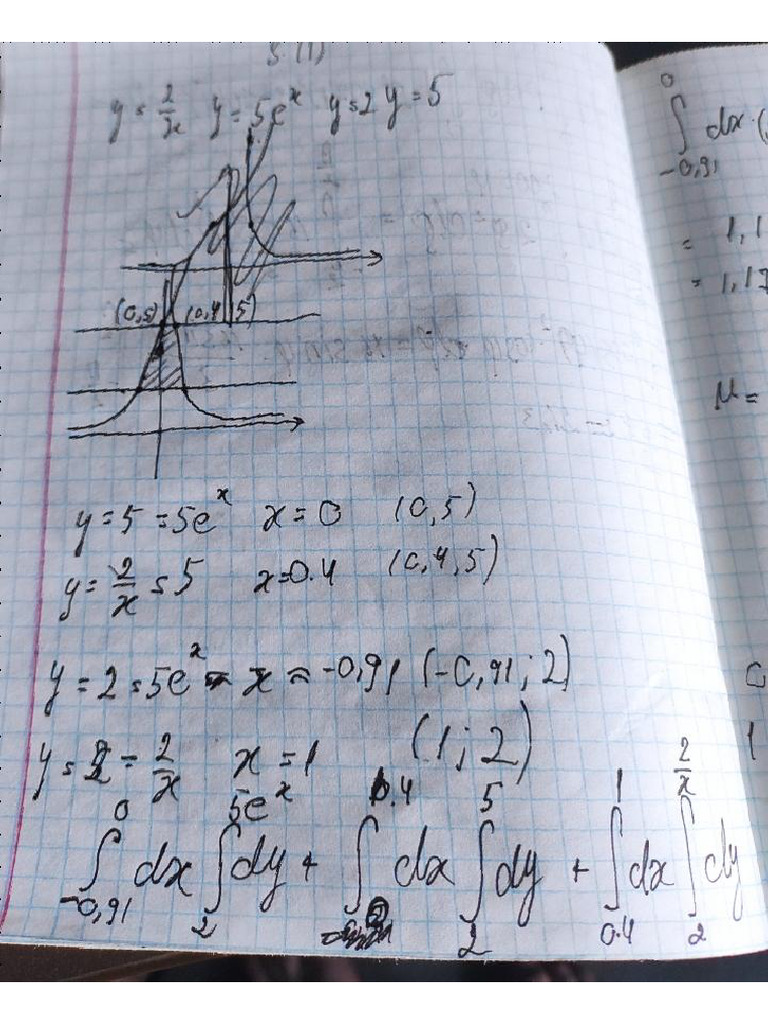 y = 2/x y = 5e^x y = 2 y = 5
(0,5) (0,4 5)
y = 5 = 5e^x x = 0 (0,5)
y = 2/x = 5 x = 0.4 (0,4,5)
y = 2 = 5e^x x = -0,91 (-0,91; 2)
y = 2 = 2/x x = 1 (1; 2)
∫_{-0,91}^{0} dx ∫_{2}^{5e^x} dy + ∫_{0}^{0.4} dx ∫_{2}^{5} dy + ∫_{0.4}^{1} dx ∫_{2}^{2/x} dy
∫_{-0,91}^{0} dx
= 1,1
= 1,17
M =